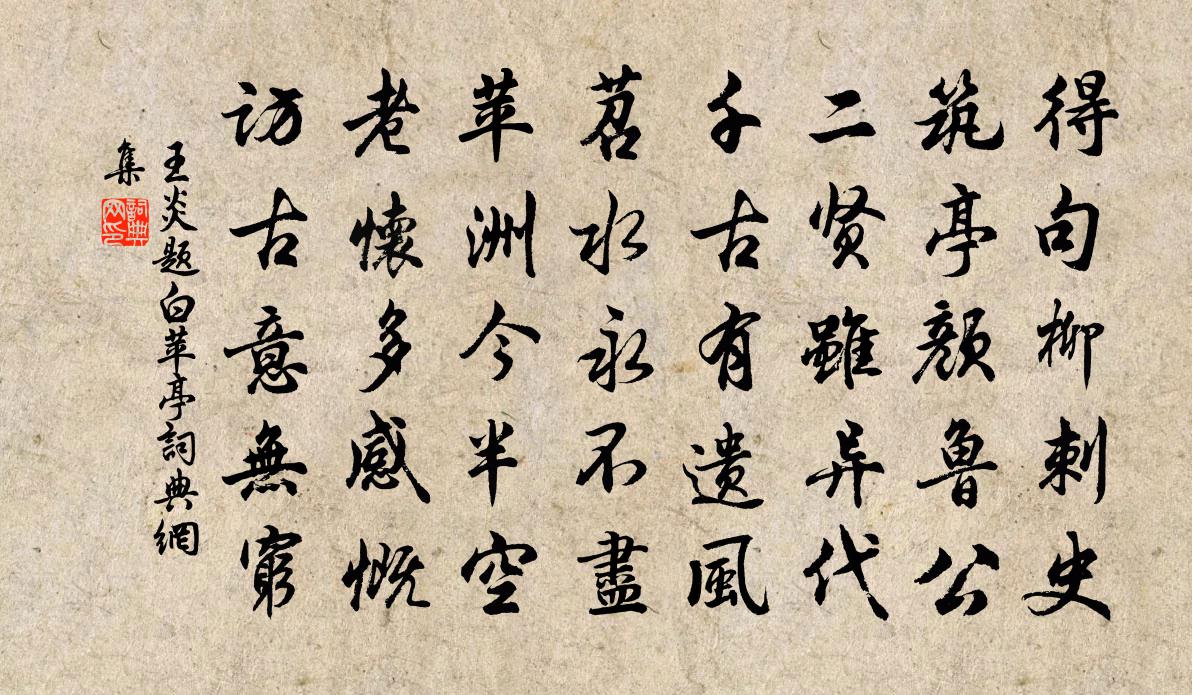 得句柳刺史
筑亭颜鲁公
二贤雖异代
千古有遗風
苕水永不盡
苹洲今半空
老懷多感慨
访古意無窮
王炎题白苹亭詞典網
集
詞典
网印